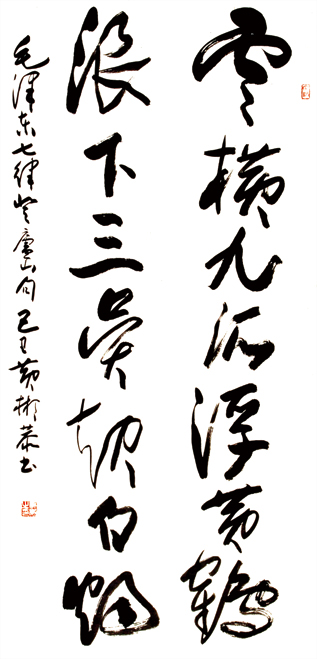 云横九派浮黄鹤
浪下三吴起白烟
毛泽东七律登庐山句己丑黄彬恭书